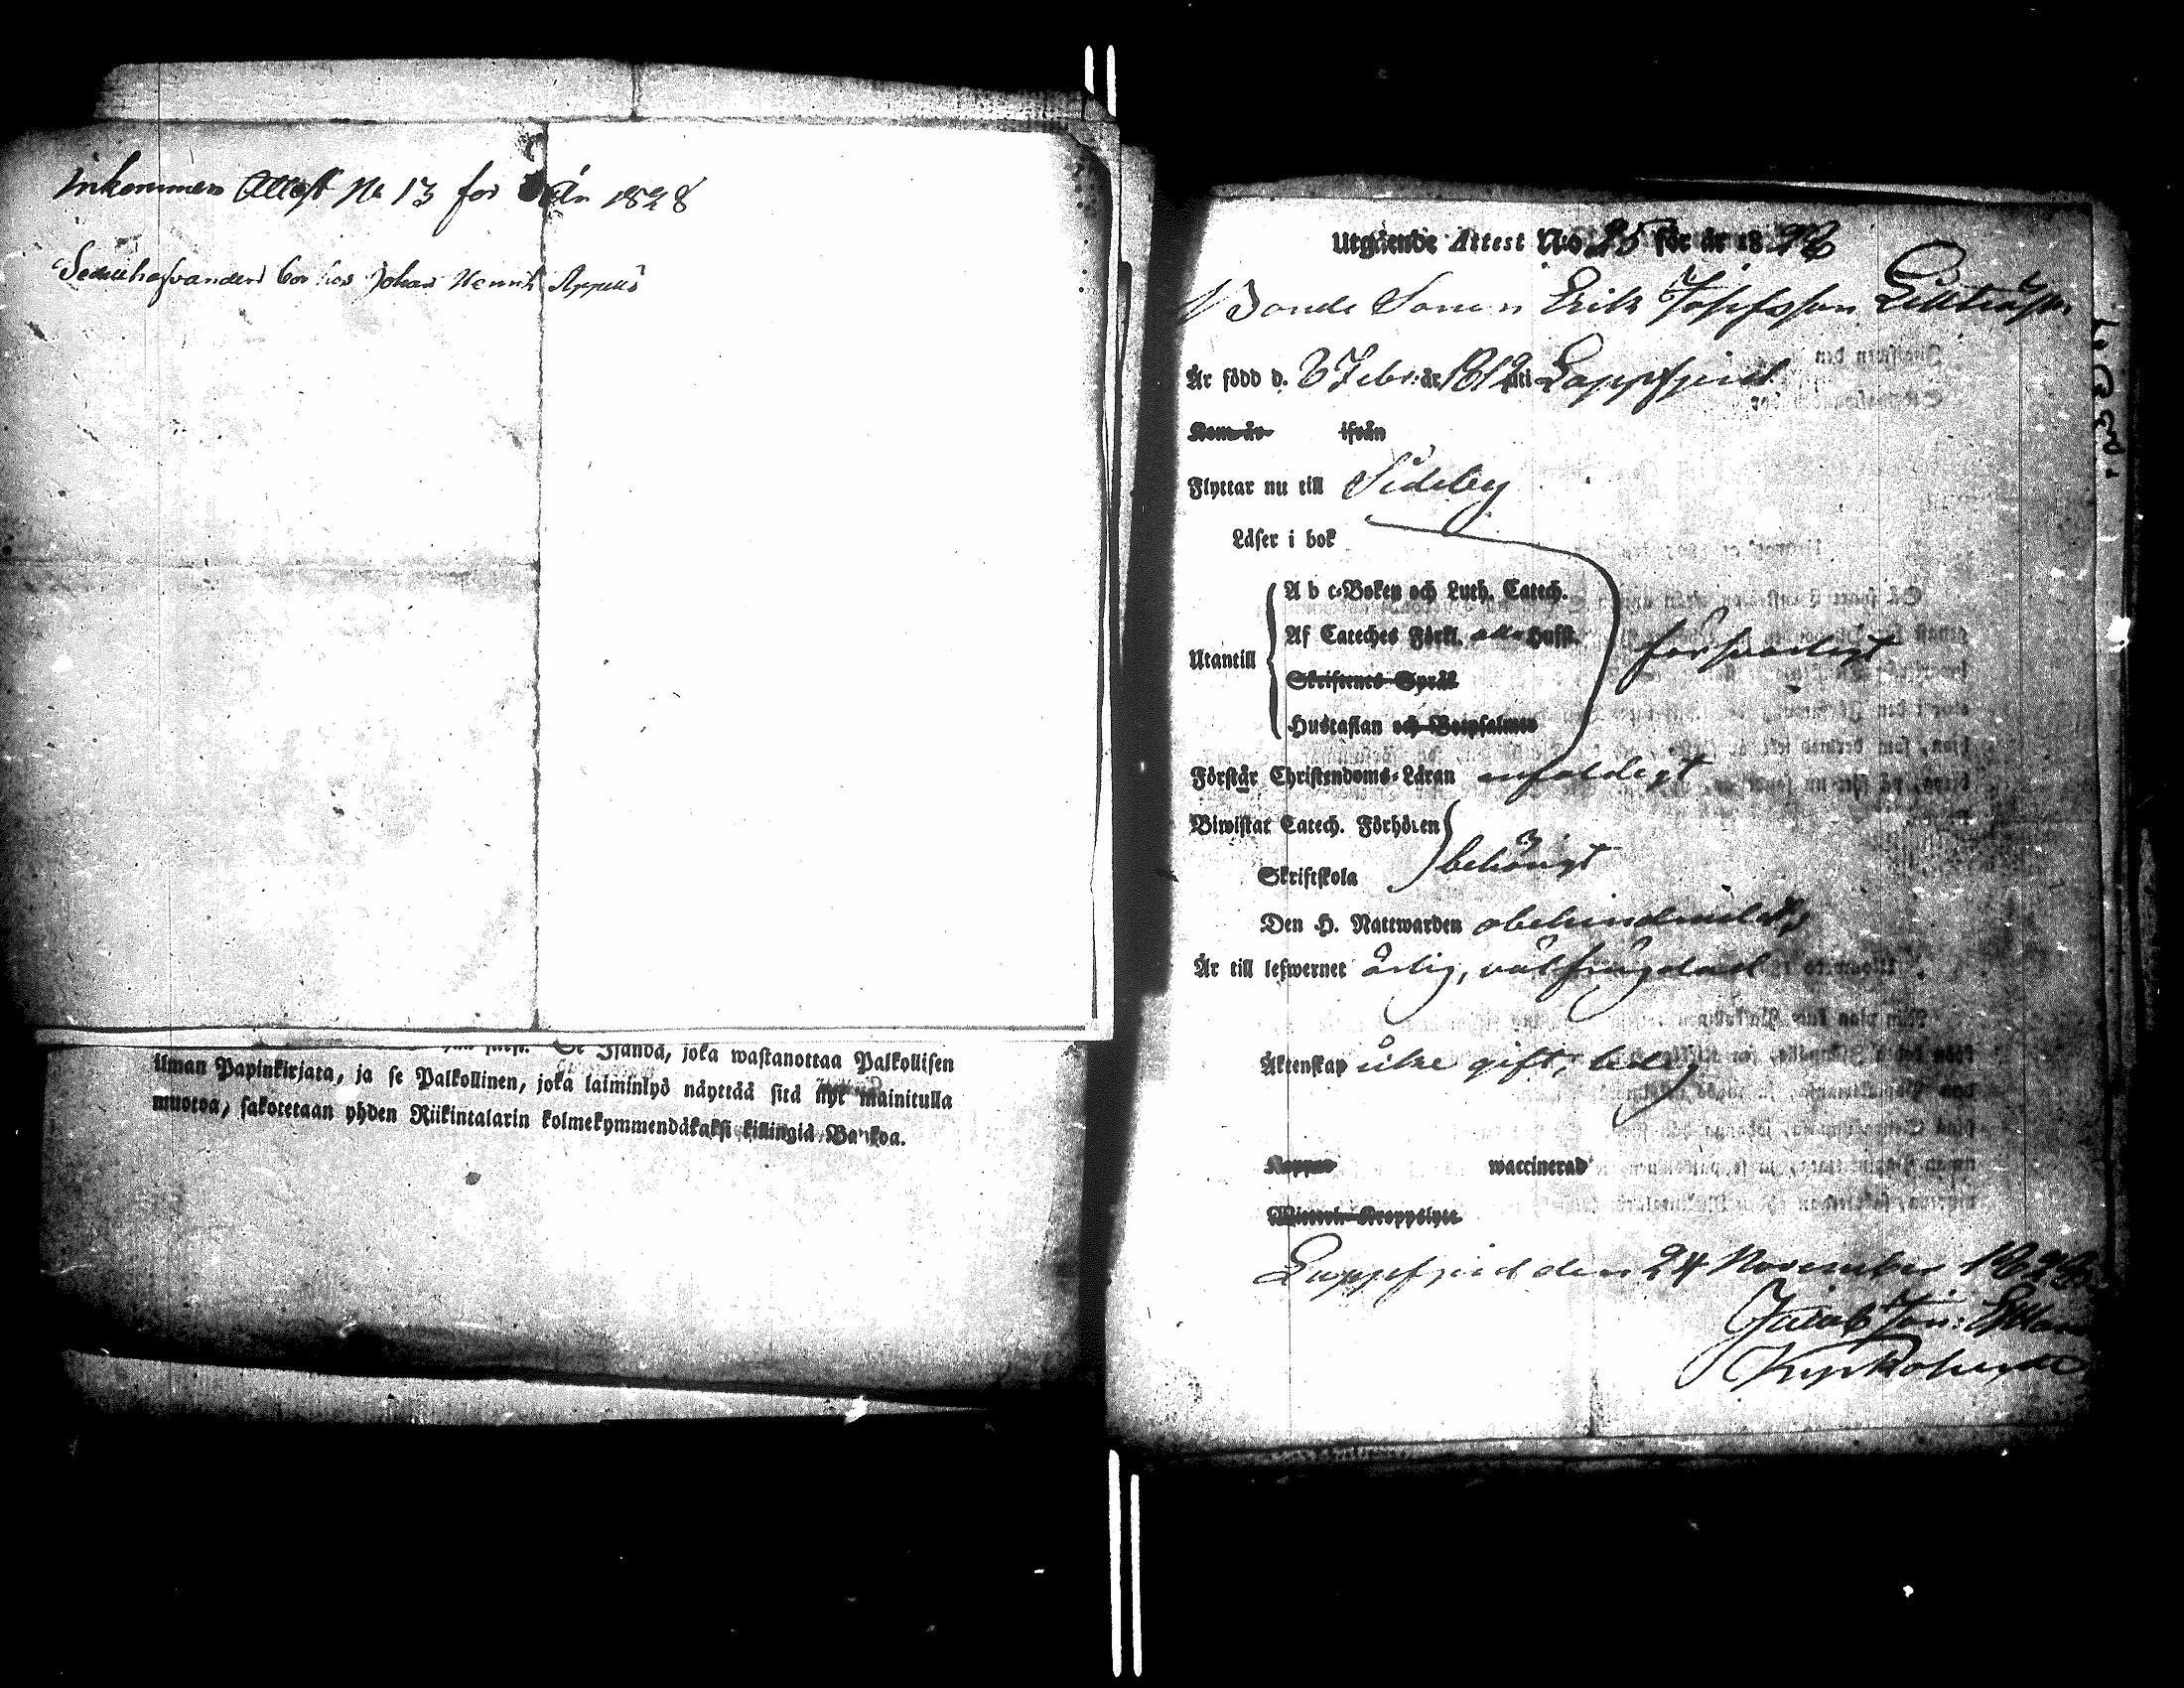 Inkommen Attest No 13 för År 1828
Sedelhafvanden bor hos Johan Henrik Appels
joka wastanottaa Palkollisen
ilman Papinkirjata, ja se Palkollinen, joka laiminlyö näyttää sitä nyt mainitulla
muotoa, sakotetaan yhden Riikintalarin kolmekymmendäkaksi killingiä Bankoa.
Utgående Attest N:o 25 för år 1828
Bonde Sonen Erik Josefsson
Är född d. 6 Febr: år 1812 uti Lappfjerd
Kom år ifrån
Flyttar nu till Sideby
Läser i bok
A b c-Boken och Luth. Catech.
Af Cateches Förkl. alla Hufst.
försvarligt
Utantill
Skriftenes Språk
Hustaflan och Botpsalmer
Förstår Christendoms-Läran enfaldigt
Biwistat Catech. Förhören
behörigt
Skriftskola
Den H. Nattwarden obehindrad,
Är till lefwernet ärlig, välfrägdad
Äktenskap icke gift, ledig
Koppor waccinerad
Lappfjerd den 24 November 1828
Jacob
Kyrkoherde